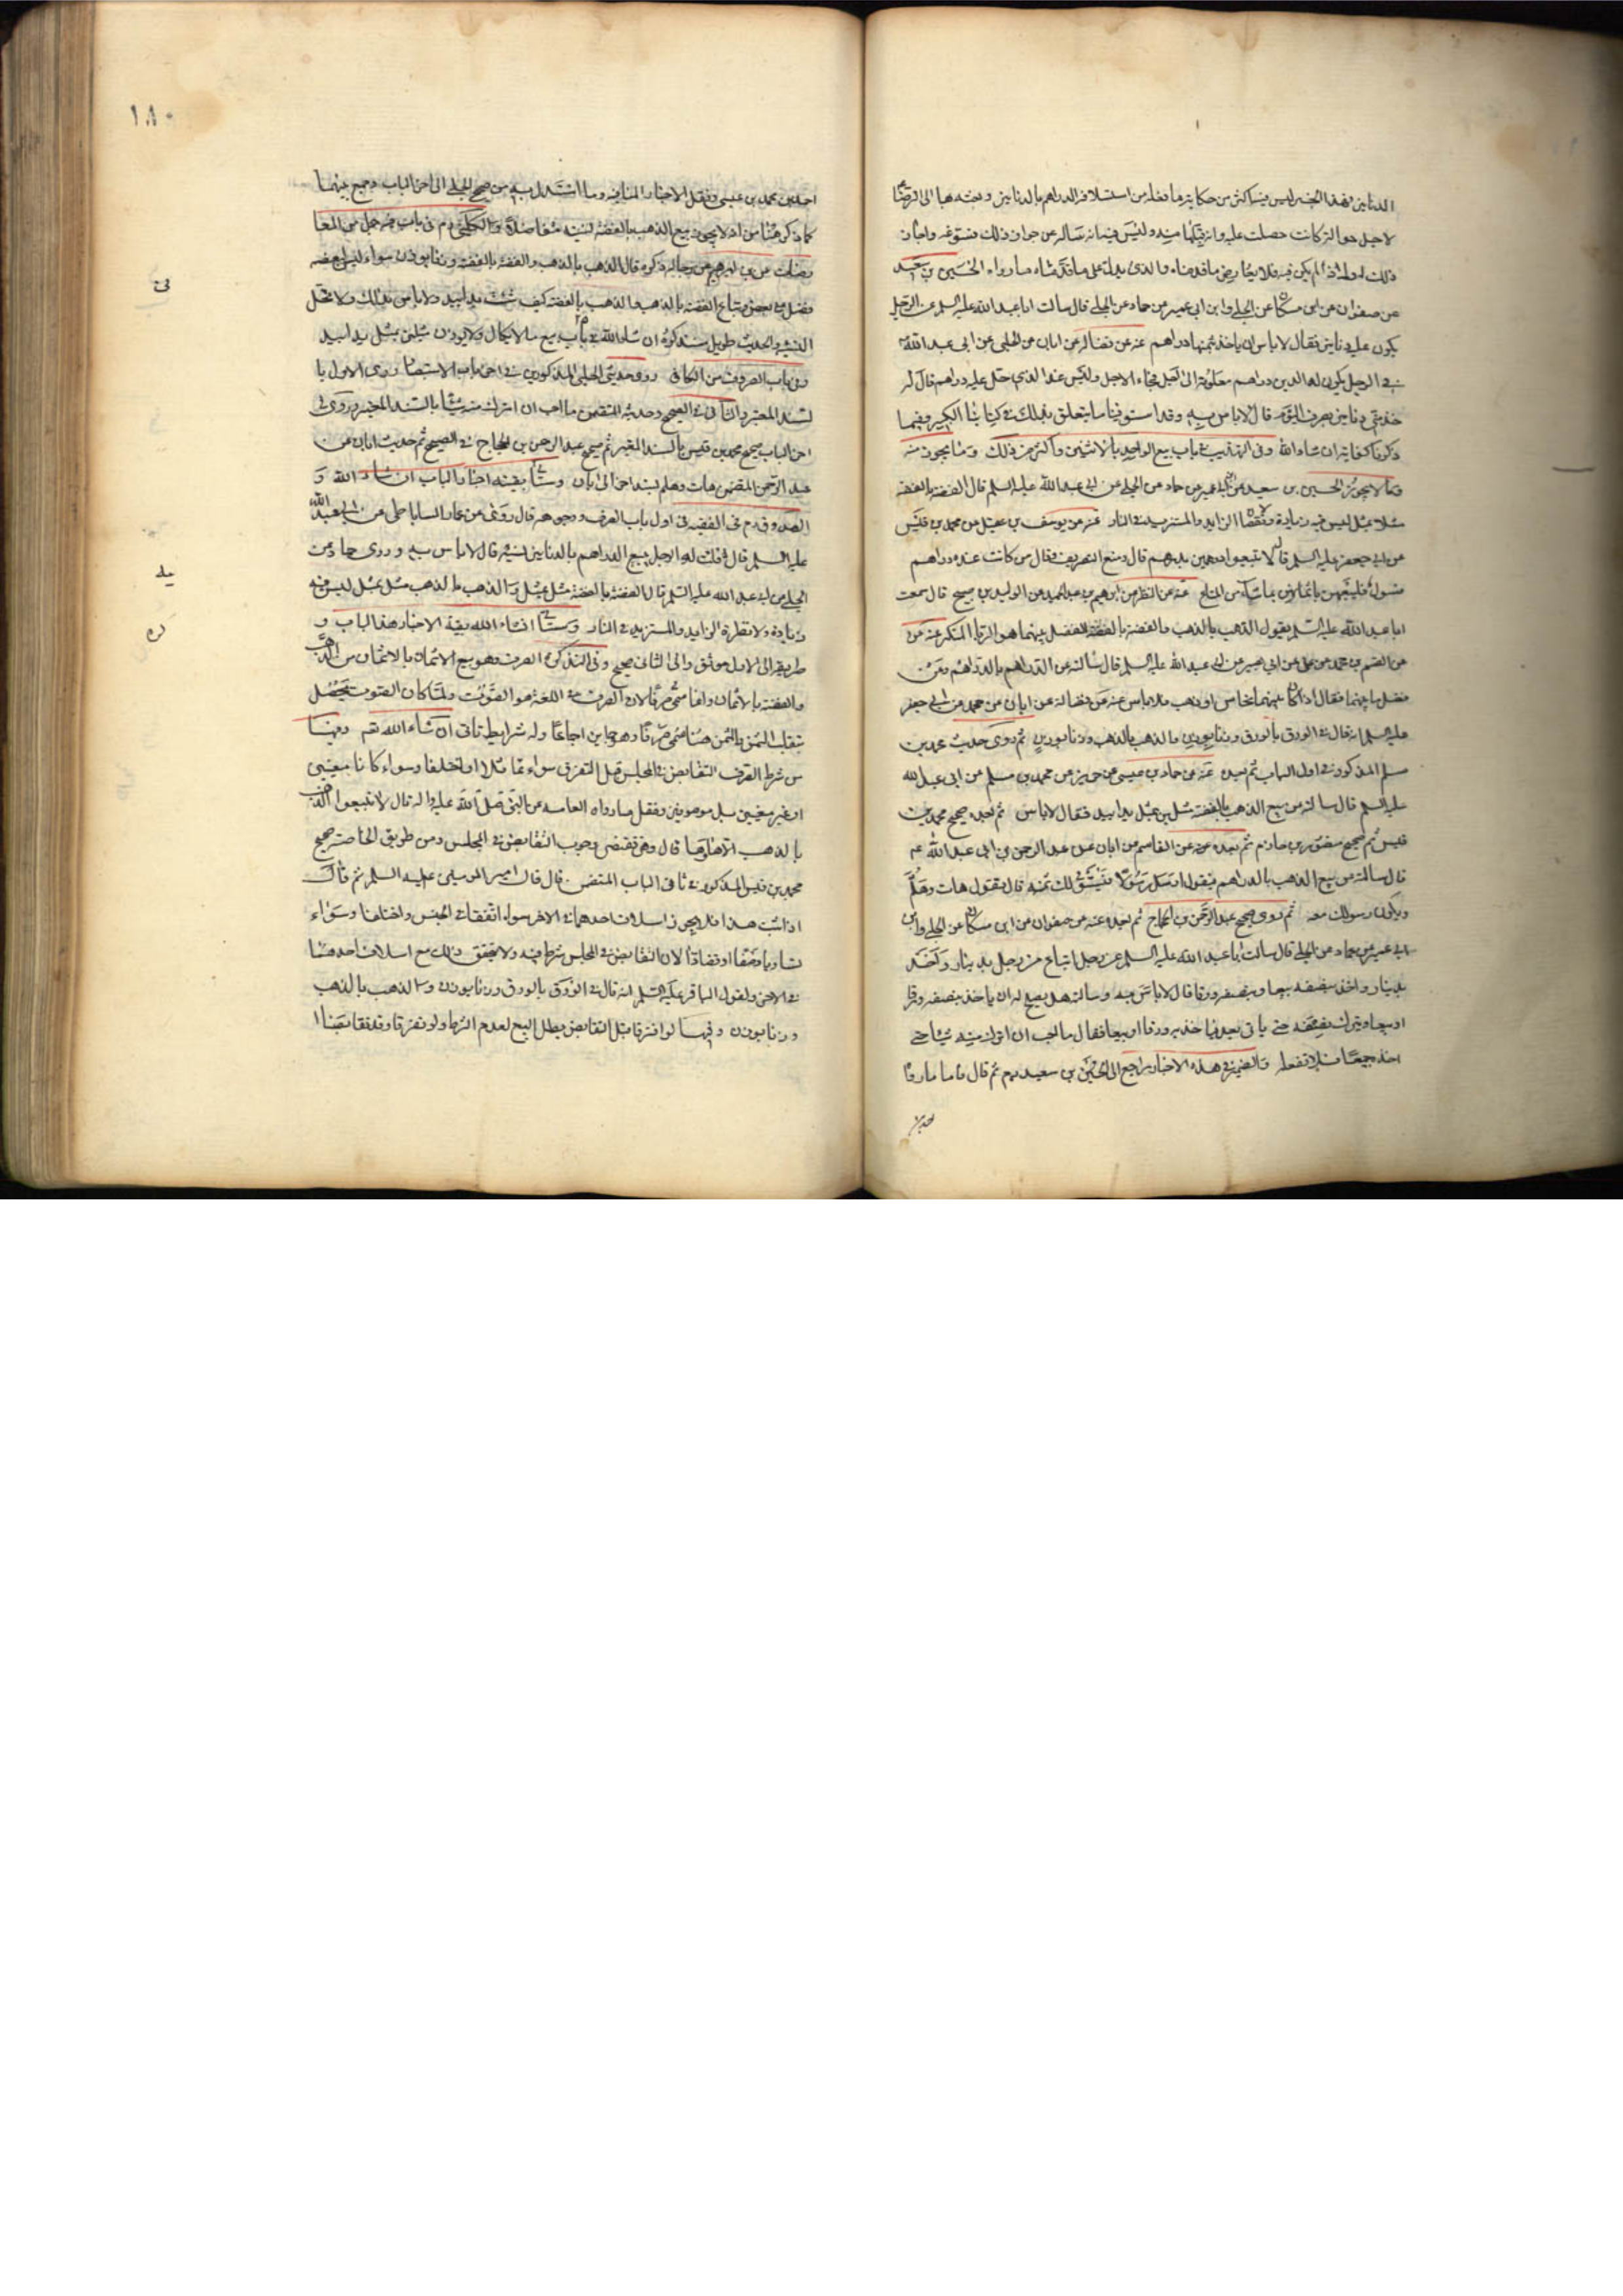 الدنانير فهذا الخبر ليس فيه اكثر من حكاية ما فعله من استلافه الدراهم بالدنانير
لاجل حوالة كانت حصلت عليه وليس فيه انه ساله عن جواز ذلك فسوغه واجازه
ذلك له واذا لم يكن فيه فلا يعارض ما قدمناه والذي يدل على ما قدمناه ما رواه الحسين بن سعيد
عن صفوان عن ابن مسكان عن الحلبي وابن ابي عمير عن حماد عن الحلبي قال سالت ابا عبد الله عليه السلم عن الرجل
يكون عليه دنانير فقال لا باس ان ياخذ بثمنها دراهم عنه عن فضالة عن ابان عن الحلبي عن ابي عبد الله
في الرجل يكون له الدين دراهم معلومة الى اجل فجاء الاجل وليس عند الذي حل عليه دراهم قال له
خذ مني دنانير بصرف اليوم قال لا باس به وقد استوفينا ما يتعلق بذلك في كتابنا الكبير وفيما
ذكرناه كفاية ان شاء الله وفي التهذيب في باب بيع الواحد بالاثنين واكثر من ذلك وما يجوز منه
وما لا يجوز الحسين بن سعيد عن ابن ابي عمير عن حماد عن الحلبي عن ابي عبد الله عليه السلم قال الفضة بالفضة
مثلا بمثل ليس فيه زيادة ولا نقصان الزايد والمستزيد في النار عنه عن يوسف بن عقيل عن محمد بن قيس
عن ابي جعفر عليه السلم قال لا تبيعوا درهمين بدرهم قال ومنع التصريف وقال من كانت عنده دراهم
فسولة فليبعهن باثمانهن بما شاء من المتاع عنه عن النظر عن ابرهيم بن عبد الحميد عن الوليد بن صبيح قال سمعت
ابا عبد الله عليه السلم يقول الذهب بالذهب والفضة بالفضة الفضل بينهما هو الربا المنكر عنه عن
عن القسم بن محمد عن علي عن ابي بصير عن ابي عبد الله عليه السلم قال سالته عن الدراهم بالدراهم وعن
فضل ما بينهما فقال اذا كان بينهما نحاس او ذهب فلا باس عنه عن فضالة عن ابان عن محمد عن ابي جعفر
عليه السلم انه قال في الورق بالورق وزنا بوزن والذهب بالذهب وزنا بوزن ثم روى حديث محمد بن
مسلم المذكور في اول الباب ثم بعده عنه عن حماد بن عيسى عن حريز عن محمد بن مسلم عن ابي عبد الله
عليه السلم قال سالته عن بيع الذهب بالفضة مثلين بمثل يدا بيد فقال لا باس ثم بعده صحيح محمد بن
قيس ثم صحيح منصور بن حازم ثم بعده عنه عن القاسم عن ابان عن عبد الرحمن بن ابي عبد الله عم
قال سالته عن بيع الذهب بالدراهم فيقول ارسل رسولا فيستوفي لك ثمنه قال يقول هات وهلم
ويكون رسولك معه ثم روى صحيح عبد الرحمن بن الحجاج ثم بعده عنه عن صفوان عن ابن مسكان عن الحلبي وابن
ابي عمير عن حماد عن الحلبي قال سالت ابا عبد الله عليه السلم عن رجل ابتاع من رجل بدينار واخذ
بدينار واخذ بنصفه بيعا وبنصفه ورقا قال لا باس به وسالته هل يصلح له ان ياخذ بنصفه ورقا
او بيعا ويترك نصفه حتى ياتي بعد فياخذ به ورقا او بيعا فقال ما احب ان اترك منه شيئا حتى
اخذه جميعا فلا تفعله والضمير في هذه الاخبار راجع الى الحسين بن سعيد ثم قال فاما ما رواه
احمد بن
١٨٠
احمد بن محمد بن عيسى ونقل الاخبار المنافيه وما استدل به من صحيح الحلبي الى اخر الباب وجمع بينهما
كما ذكر هنا من انه لا يجوز بيع الذهب بالفضة نسيئة
عن رجاله ذكره قال الذهب بالذهب والفضة بالفضة وزنا بوزن سواء ليس لبعضه
فضل على بعض وتباع الفضة بالذهب والذهب بالفضة كيف شئت يدا بيد ولا باس بذلك ولا تحل
النسيئة والحديث طويل سنذكره ان شاء الله في باب بيع ما لا يكال ولا يوزن مثلين بمثل يدا بيد
وفي باب الصروف من الكافي روى حديثي الحلبي المذكورين في اخر باب الاستبصار روى الاول با
لسند المعتبر والثاني في الصحيح وحديثه المتضمن ما احب ان اترك منه شيئا بالسند المعتبر وروى في
اخر الباب صحيح محمد بن قيس بالسند المعتبر ثم صحيح عبد الرحمن بن الحجاج في الصحيح ثم حديث ابان عن
عبد الرحمن المتضمن هات وهلم بسند اخر الى ابان وستاتي بقية اخبار الباب ان شاء الله و
الصدوق في الفقيه في اول باب الصرف ووجوهه قال روى عن عمار الساباطي عن ابي عبد الله
عليه السلم قال قلت له الرجل يبيع الدراهم بالدنانير نسيئة قال لا باس به وروى حماد عن
الحلبي عن ابي عبد الله عليه السلم قال الفضة بالفضة مثل بمثل والذهب بالذهب مثل بمثل ليس فيه
زيادة ولا نظرة الزايد والمستزيد في النار وستاتي انشاء الله بقية الاخبار هذا الباب و
طريقه الى الاول موثق والى الثاني صحيح وفي التذكرة الصرف وهو بيع الاثمان بالاثمان من الذهب
والفضة بالاثمان وانما سمي صرفا لان الصرف في اللغة هو الصوت ولما كان الصوت يحصل
بتقليب الثمن والمثمن هنا سمي صرفا وهو جايز اجماعا وله شرايط تاتي ان شاء الله تعم وفيها
من شرط الصرف التقابض في المجلس قبل التفرق سواء تماثلا او اختلفا وسواء كانا معينين
او غير معينين بل موصوفين ونقل ما رواه العامه عن النبي صلى الله عليه واله قال لا تبيعوا الذهب
بالذهب الا هاء وها قال وهو يقتضي وجوب التقابض في المجلس ومن طريق الخاصة صحيح
محمد بن قيس المذكور في ثاني الباب المتضمن قال قال امير المومنين عليه السلم ثم قال
اذا ثبت هذا فلا يجوز اسلاف احدهما في الاخر سواء اتفقا في الجنس واختلفا وسواء
تساويا وصفا او تضادا لان التقابض في المجلس شرط فيه ولا يتحقق ذلك مع اسلاف احدهما
في الاخر ولقول الباقر عليه السلم انه قال في الورق بالورق وزنا بوزن والذهب بالذهب
وزنا بوزن وفيها لو افترقا قبل التقابض بطل البيع لعدم الشرط ولو تفرقا وقد تقابضا